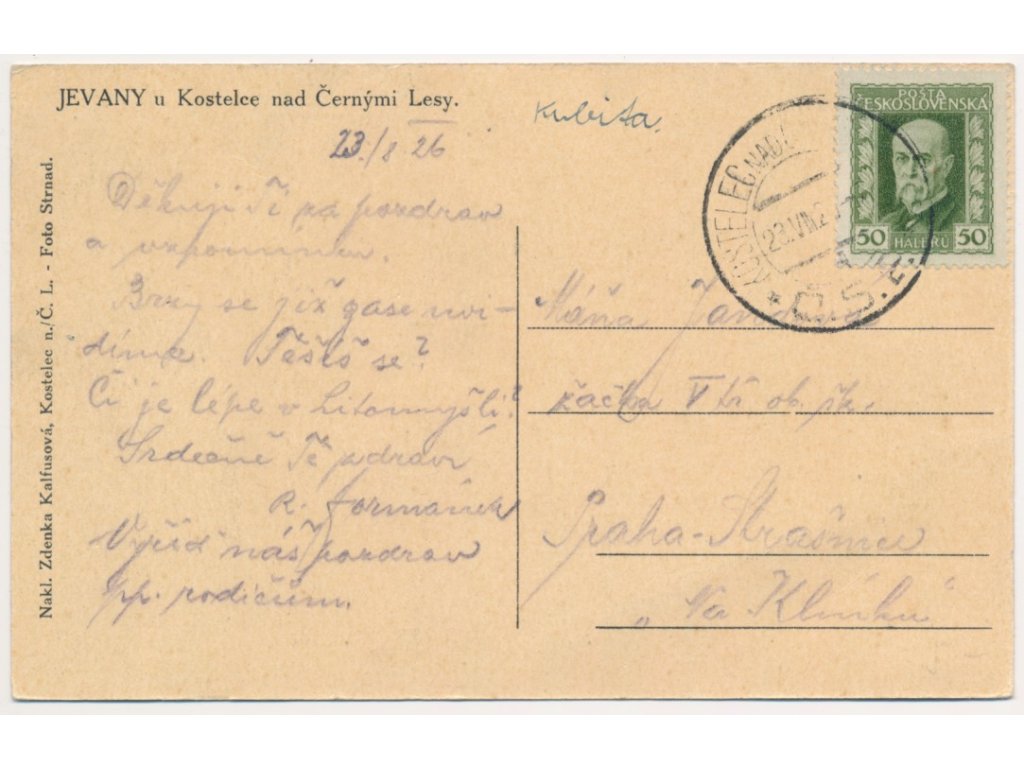 JEVANY u Kostelce nad Černými Lesy.
Kubita.
23./8 26
Děkuji Ti za pozdrav
a vzpomínku.
Brzy se již zase uvi-
díme. Těšíš se?
Či je lépe v Litomyšli?
Srdečně Tě zdraví
R. Formánek
Vyřiď náš pozdrav
pp. rodičům.
Nakl. Zdenka Kalfusová, Kostelec n./Č. L. - Foto Strnad.
POŠTA
ČESKOSLOVENSKÁ
50 HALÉŘŮ 50
KOSTELEC NAD Č
23.VIII.2
Č.S.
Máňa
žačka V tř. ob. šk.
Praha-Strašnice
„Na Klínku"